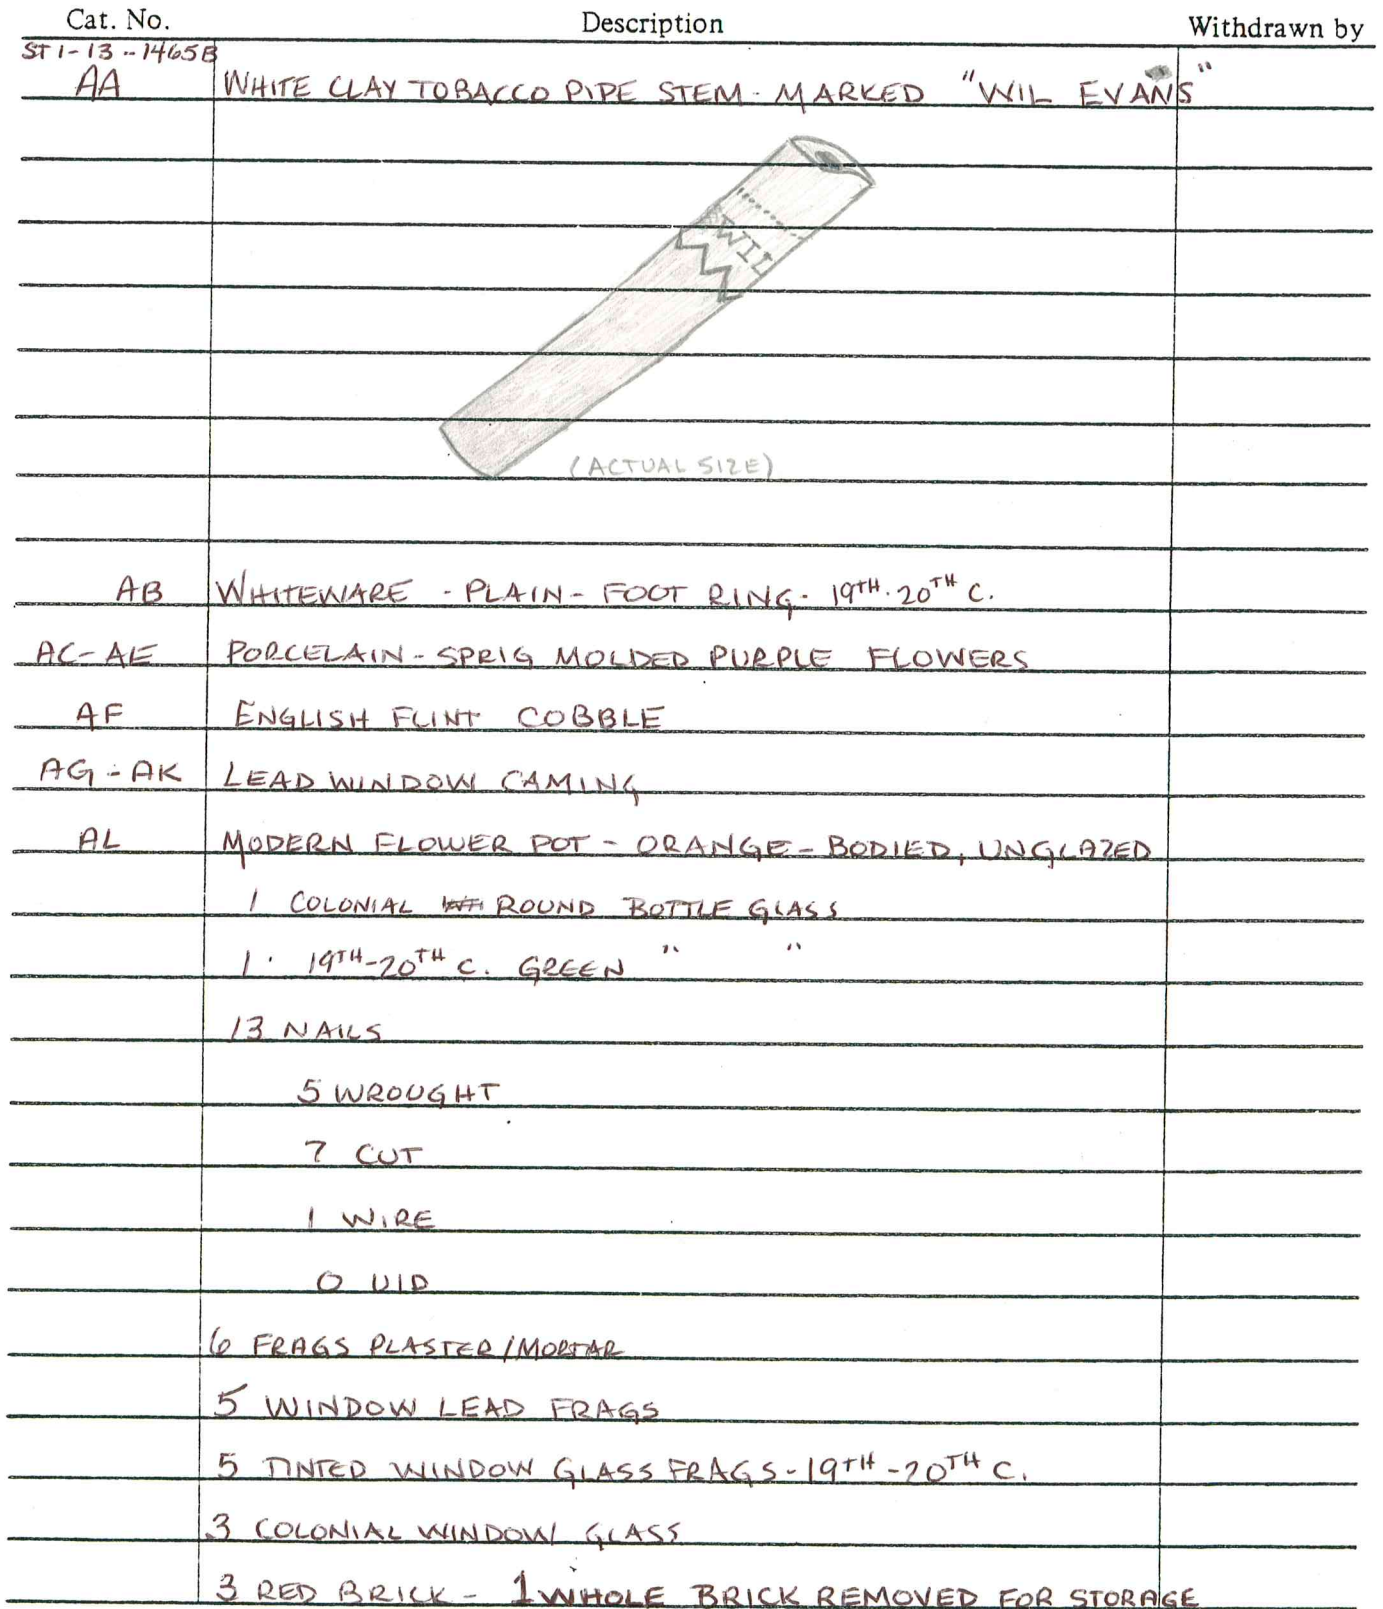 Cat. No. Description Withdrawn by
ST 1-13--1465B
AA WHITE CLAY TOBACCO PIPE STEM - MARKED "WIL EVANS"
WIL
(ACTUAL SIZE)
AB WHITEWARE - PLAIN - FOOT RING - 19TH-20TH C.
AC-AE PORCELAIN - SPRIG MOLDED PURPLE FLOWERS
AF ENGLISH FLINT COBBLE
AG-AK LEAD WINDOW CAMING
AL MODERN FLOWER POT - ORANGE-BODIED, UNGLAZED
1 COLONIAL ROUND BOTTLE GLASS
1 19TH-20TH C. GREEN " "
13 NAILS
5 WROUGHT
7 CUT
1 WIRE
0 UID
6 FRAGS PLASTER/MORTAR
5 WINDOW LEAD FRAGS
5 TINTED WINDOW GLASS FRAGS - 19TH-20TH C.
3 COLONIAL WINDOW GLASS
3 RED BRICK - 1 WHOLE BRICK REMOVED FOR STORAGE